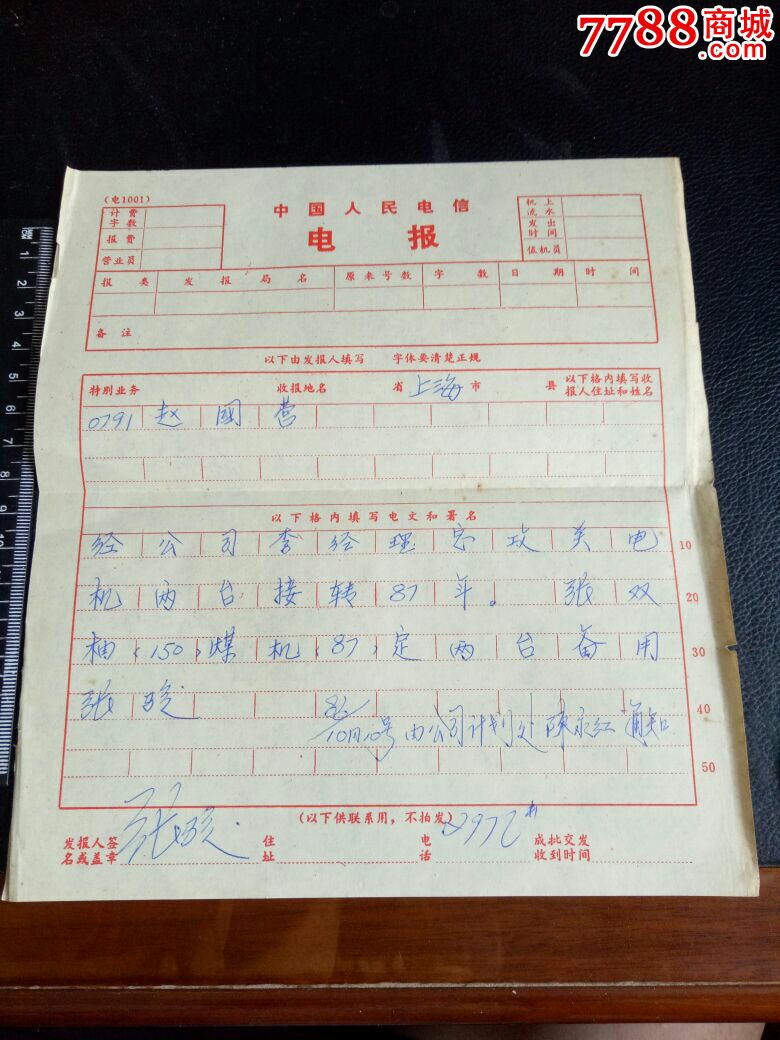 7788商城
.com
(电1001)
中国人民电信
电 报
计费字数
报费
营业员
机上流水
发出时间
值机员
报类 发报局名 原来号数 字数 日期 时间
备注
以下由发报人填写 字体要清楚正规
特别业务 收报地名 省 上海 市 县 以下格内填写收报人住址和姓名
0791 赵國营
以下格内填写电文和署名
经公司李经理总攻关电 10
机两台接转87年。张双 20
柚(150)煤机(87)定两台备用 30
张骏 40
86/10月10号 由公司计划处陈永红通知
50
(以下供联系用,不拍发)
发报人签名或盖章 张骏 住址 电话 成批交发收到时间